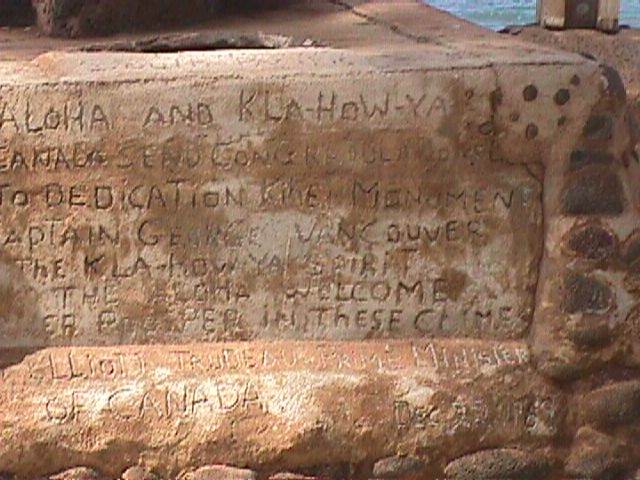 ALOHA AND KLA-HOW-YA
CANADA SEND CONGRATULATIONS
TO DEDICATION KIHEI MONUMENT
APTAIN GEORGE VANCOUVER
The KLA-HOW-YA SPIRIT
THE ALOHA WELCOME
ER PROSPER IN THESE CLIMES
ELLIOTT TRUDEAU PRIME MINISTER
OF CANADA
DEC 1969